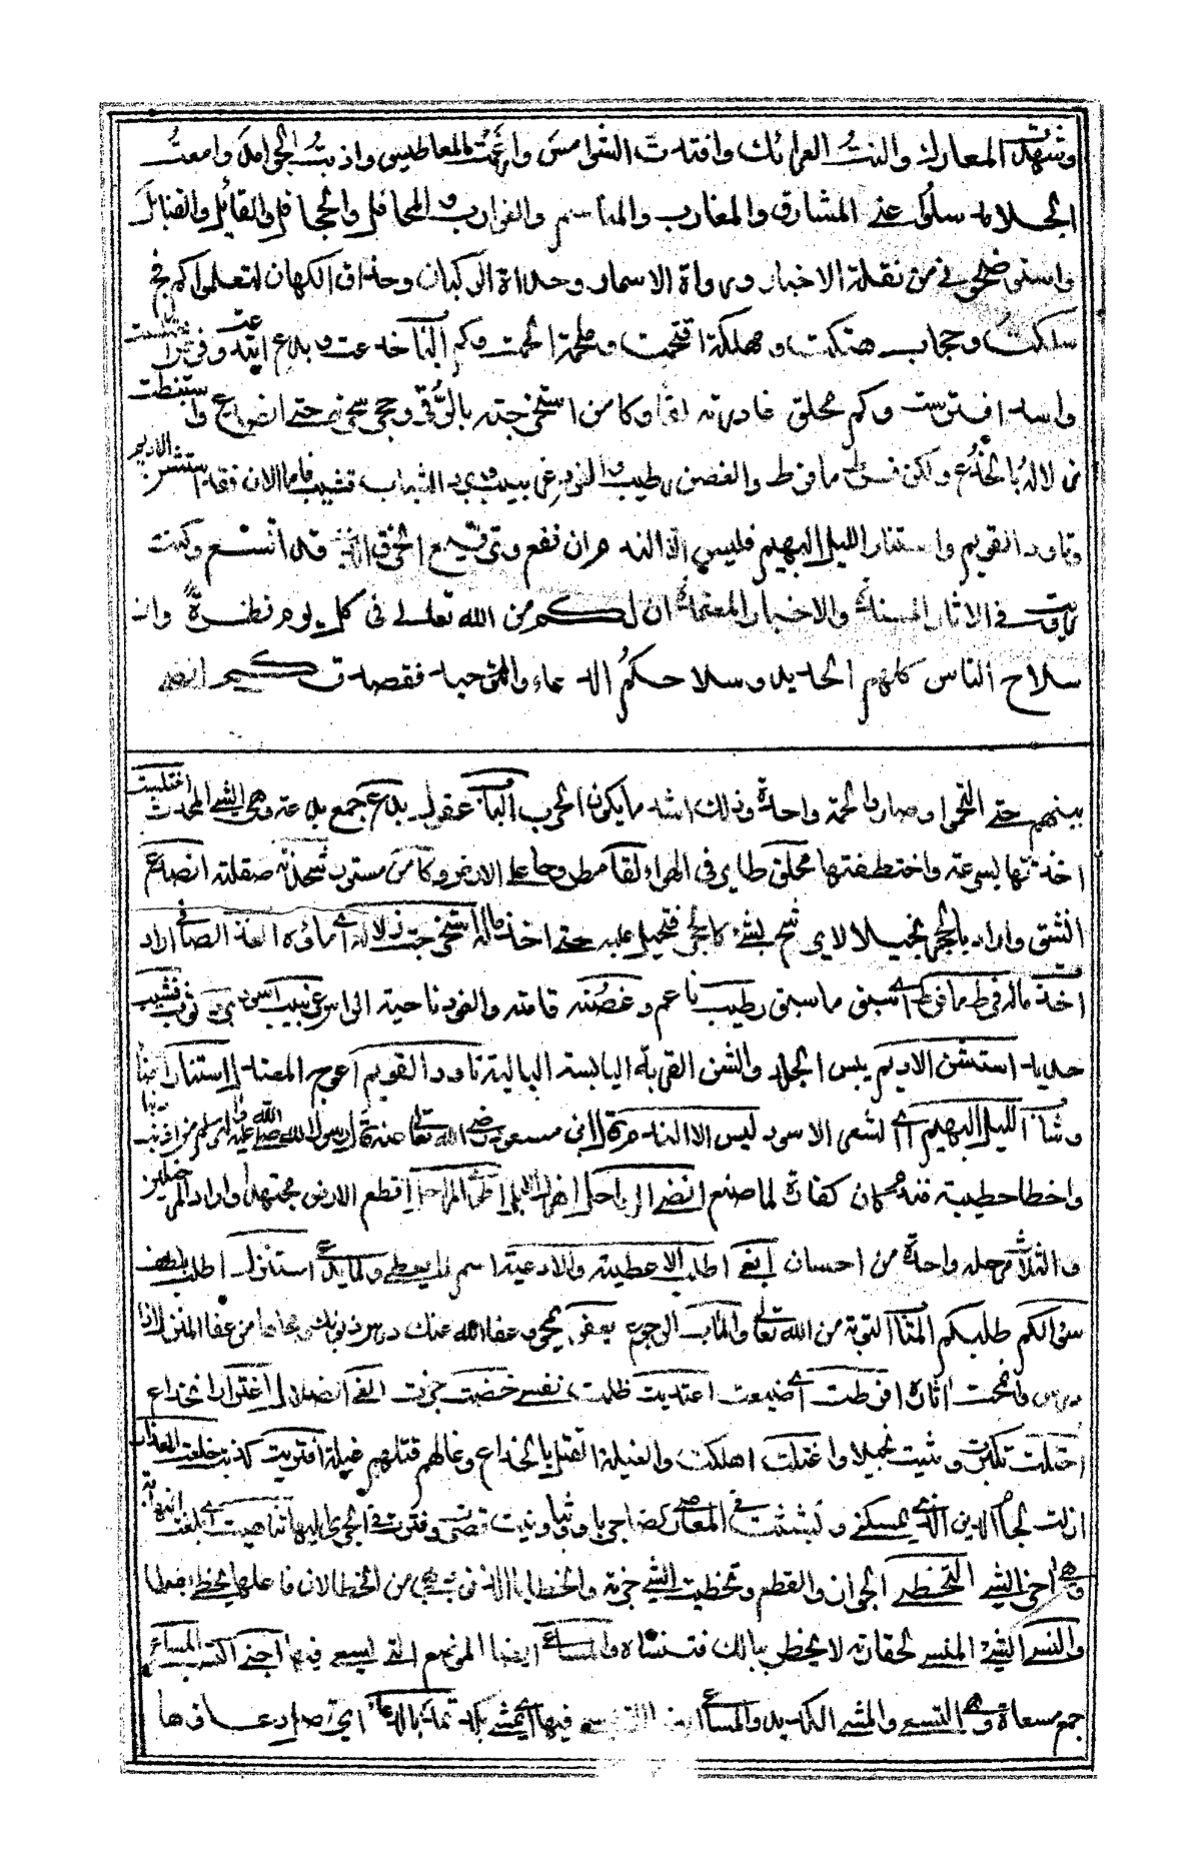 وشهدت المعارك والنت العرائك وافتدت الشوامس وارغمت المعاطس واذبت الجوامد وامعت
الجلامد سلوا عنى المشارق والمغارب والمناسم والغوارب والمحافل والجحافل والقبائل والقنابل
واستوضحونى من نقلة الاخبار ورواة الاسمار وحداة الركبان وحذاق الكهان لتعلموا كم فج
سلكت وحجاب هتكت ومهلكة اقتحمت وملحمة الحمت وكم الباب خدعت وبدع ابتدعت وفرص اختلست
واسد افترست وكم محلق غادرته لقا وكامن استخرجته بالرقى وحجر شحذته حتى انصدع واستنبطت
زلاله بالخدع ولكن فرط ما فرط والغصن رطيب والفود غربيب وبرد الشباب قشيب فاما الان فقد استشن الاديم
وتاود القويم واستنار الليل البهيم فليس الا الندم ان نفع وترقيع الخرق الذى قد اتسع وكنت
رويت فى الاثار المسندة والاخبار المعتمدة ان لكم من الله تعالى فى كل يوم نظرة وان
سلاح الناس كلهم الحديد وسلاحكم الادعية والتوحيد فقصدتكم انضى
بينهم حتى التحموا وصاروا لحمة واحدة وذلك اشد ما يكون الحرب الباب عقول بدع جمع بدعة وهى الشىء المحدث اختلست
اخذتها بسرعة واختطفتها محلق طاير فى الهواء لقا مطروحا على الارض وكامن مستور شحذته صقلته انصدع
انشق واراد بالحجر بخيلا لا يرشح بشىء كالحجر فتحيل عليه حتى اخذ ماله استخرجت زلاله اى ماؤه العذب الصافى اراد
اخذ ماله فرط ما فرط اى سبق ما سبق رطيب ناعم وغصنه قامته والفود ناحية الراس غربيب اسود برد ثوب قشيب
جديد استشن الاديم يبس الجلد والشن القربة اليابسة البالية تاود القويم اعوج المعتدل استنار اضا
وشاب الليل البهيم اى الشعر الاسود ليس الا الندم لابن مسعود رضى الله تعالى عنه قال رسول الله صلى الله عليه وسلم من اذنب ذنبا
واخطا خطيئة فندم كان كفارة لما صنع انضى الرواحل اطوى المراحل اقطع الارض مجتهدا واراد المرحلتين
والثلاث مرحلة واحدة من احسان ابغى اطلب الاعطية والادعية اسم لما يعطى ولما يدعى استنزل اطلب بلطف
سؤالكم طلبكم المتاب التوبة من الله تعالى والماب الرجوع يعفو يمحى وعفا الله عنك درس ذنوبك ومحاها من عفا المنزل اذا
درس وانمحت اثاره افرطت اى ضيعت اعتديت ظلمت نفسى خضت جزت الغى الضلال اغترار انخداع
اختلت تكبرت ومشيت بخيلا واغتلت اهلكت والغيلة القتل بالخداع وغالهم قتلهم غيلة افتريت كذبت خلعت العذار
ازلت لجام الدين الذى يمسكنى وتشبثت فى المعاصى ركضا جريا ووثبا وونيت قصرت وفترت فى الجرى اليها تناهيت اى بلغت النهاية
وهى اخر الشىء التخطى الجواز والقطع وتخطيت الشىء جزته والخطايا الذنوب
والنسى الشىء المنسى لحقارته لا يخطر ببالك فتنساه والمساعى ايضا المواضع التى يسعى فيها اجنى اكتسب المساعى
جمع مسعاة وهى السعى والمشى الكديد والمساعى فيها اى يمشى